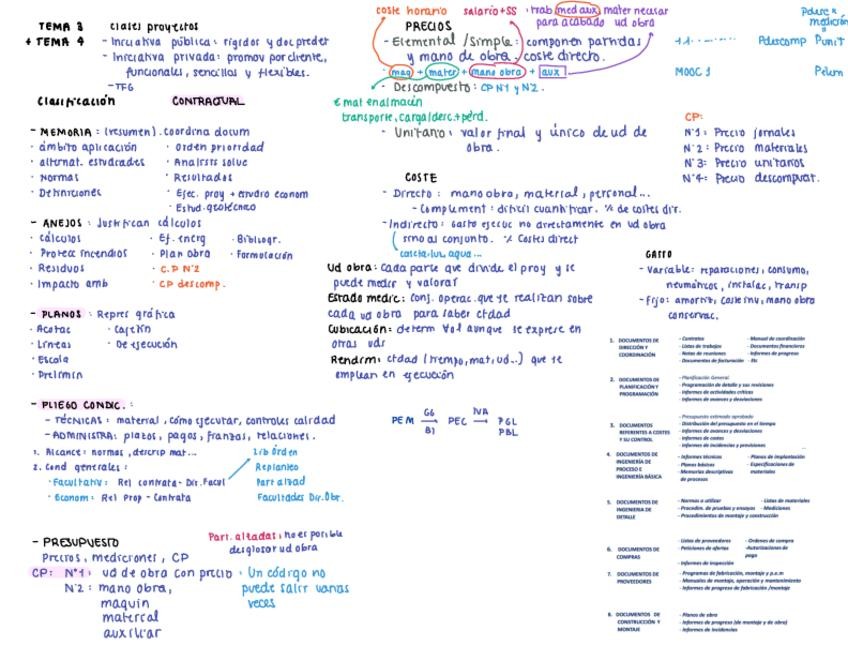 TEMA 3 clases proyectos
+ TEMA 4 - Iniciativa pública: rígidos y doc predet
- Iniciativa privada: promov por cliente,
funcionales, sencillas y flexibles.
- TFG
Clasificación CONTRACTUAL
- MEMORIA: (resumen). coordina docum
· ámbito aplicación · Orden prioridad
· alternat. estudiadas · Analisis soluc
· Normas · Resultados
· Definiciones · Ejec. proy + estudio econom
· Estud. geotécnico
- ANEJOS: Justifican cálculos
· cálculos · Ef. energ · Bibliogr.
· Protecc incendios · Plan obra · Formulación
· Residuos · C.P Nº2
· Impacto amb · CP descomp.
- PLANOS: Repres gráfica
· Acotac · Cajetín
· Líneas · De ejecución
· Escala
· Prelimin
- PLIEGO CONDIC.:
- TÉCNICAS: material, cómo ejecutar, controles calidad
- ADMINISTRA: plazos, pagos, fianzas, relaciones.
1. Alcance: normas, descrip mat...
2. Cond generales:
· Facultativ: Rel contrata - Dir. Facul
· Econom: Rel Prop - Contrata
Lib Orden
Replanteo
Part alzad
Facultades Dir. Obr.
- PRESUPUESTO
Precios, mediciones, CP
Part. alzadas: no es posible
desglosar ud obra
CP: Nº1: ud de obra con precio · Un código no
Nº2: mano obra, puede salir varias
maquin veces
material
auxiliar
coste horario salario+SS · trab med aux, mater necesar
para acabado ud obra
PRECIOS
- Elemental / Simple: componen partidas
y mano de obra. coste directo.
· maq + mater + mano obra + aux
- Descompuesto: CP Nº1 y Nº2.
€ mat en almacín
transporte, carga/desc. + pérd.
- Unitario: valor final y único de ud de
obra.
COSTE
- Directo: mano obra, material, personal...
- Complement: difícil cuantificar. % de costes dir.
- Indirecto: Gasto ejecuc no directamente en ud obra
sino al conjunto. % Costes direct
caseta, luz, agua...
Ud obra: cada parte que divide el proy y se
puede medir y valorar
Estado medic: conj. operac. que se realizan sobre
cada ud obra para saber ctdad
Cubicación: determ Vol aunque se exprese en
otras uds
Rendim: ctdad (tiempo, mat, ud...) que se
emplean en ejecución
PEM GG BI PEC IVA PGL
PBL
Pdescomp Punit
MOOC 1 Pelem
CP:
Nº1: Precio jornales
Nº2: Precio materiales
Nº3: Precio unitarios
Nº4: Precio descompuest.
GASTO
- Variable: reparaciones, consumo,
neumáticos, instalac, transp
- Fijo: amortiz, coste inv, mano obra
conservac.
1. DOCUMENTOS DE DIRECCIÓN Y COORDINACIÓN
- Contratos - Manual de coordinación
- Listas de trabajos - Documentos financieros
- Notas de reuniones - Informes de progreso
- Documentos de facturación - Etc
2. DOCUMENTOS DE PLANIFICACIÓN Y PROGRAMACIÓN
- Planificación General
- Programación de detalle y sus revisiones
- Informes de actividades críticas
- Informes de avances y desviaciones
3. DOCUMENTOS REFERENTES A COSTES Y SU CONTROL
- Presupuesto estimado aprobado
- Distribución del presupuesto en el tiempo
- Informes de avances y desviaciones
- Informes de costes
- Informes de incidencias y previsiones
4. DOCUMENTOS DE INGENIERÍA DE PROCESO E INGENIERÍA BÁSICA
- Informes técnicos - Planos de implantación
- Planos básicos - Especificaciones de materiales
- Memorias descriptivas de procesos
5. DOCUMENTOS DE INGENIERIA DE DETALLE
- Normas a utilizar - Listas de materiales
- Procedim. de pruebas y ensayos - Mediciones
- Procedimientos de montaje y construcción
6. DOCUMENTOS DE COMPRAS
- Listas de proveedores - Ordenes de compra
- Peticiones de ofertas - Autorizaciones de pago
- Informes de inspección
7. DOCUMENTOS DE PROVEEDORES
- Programas de fabricación, montaje y p.e.m
- Manuales de montaje, operación y mantenimiento
- Informes de progreso de fabricación /montaje
8. DOCUMENTOS DE CONSTRUCCIÓN Y MONTAJE
- Planos de obra
- Informes de progreso (de montaje y de obra)
- Informes de incidencias